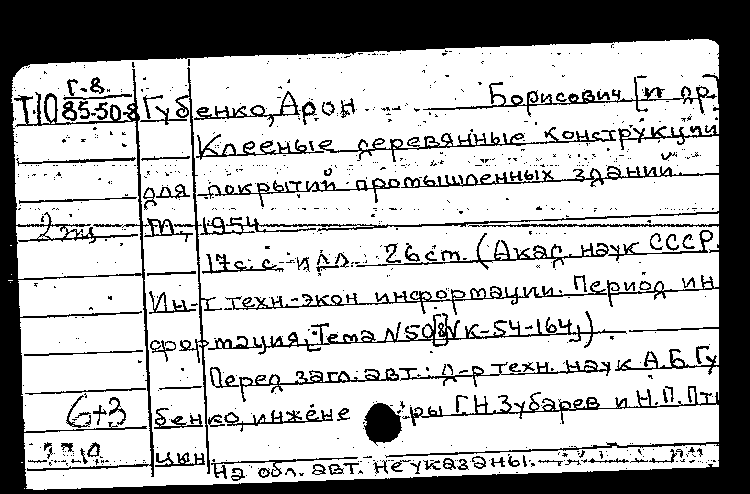 Г-8
Т-10 85-50-8 Губенко, Арон Борисович [и др]
Клееные деревянные конструкции
для покрытий промышленных зданий.
2 экз М., 1954
17 с. с илл. 26 см. (Акад. наук СССР.
Ин-т техн.-экон информации. Период ин
формация, Тема N50 К-54-164,)
Перед загл. авт.: д-р техн. наук А.Б. Гу
6+3 бенко, инжене ры Г.Н. Зубарев и Н.П. Пти
цын.
На обл. авт. не указаны.